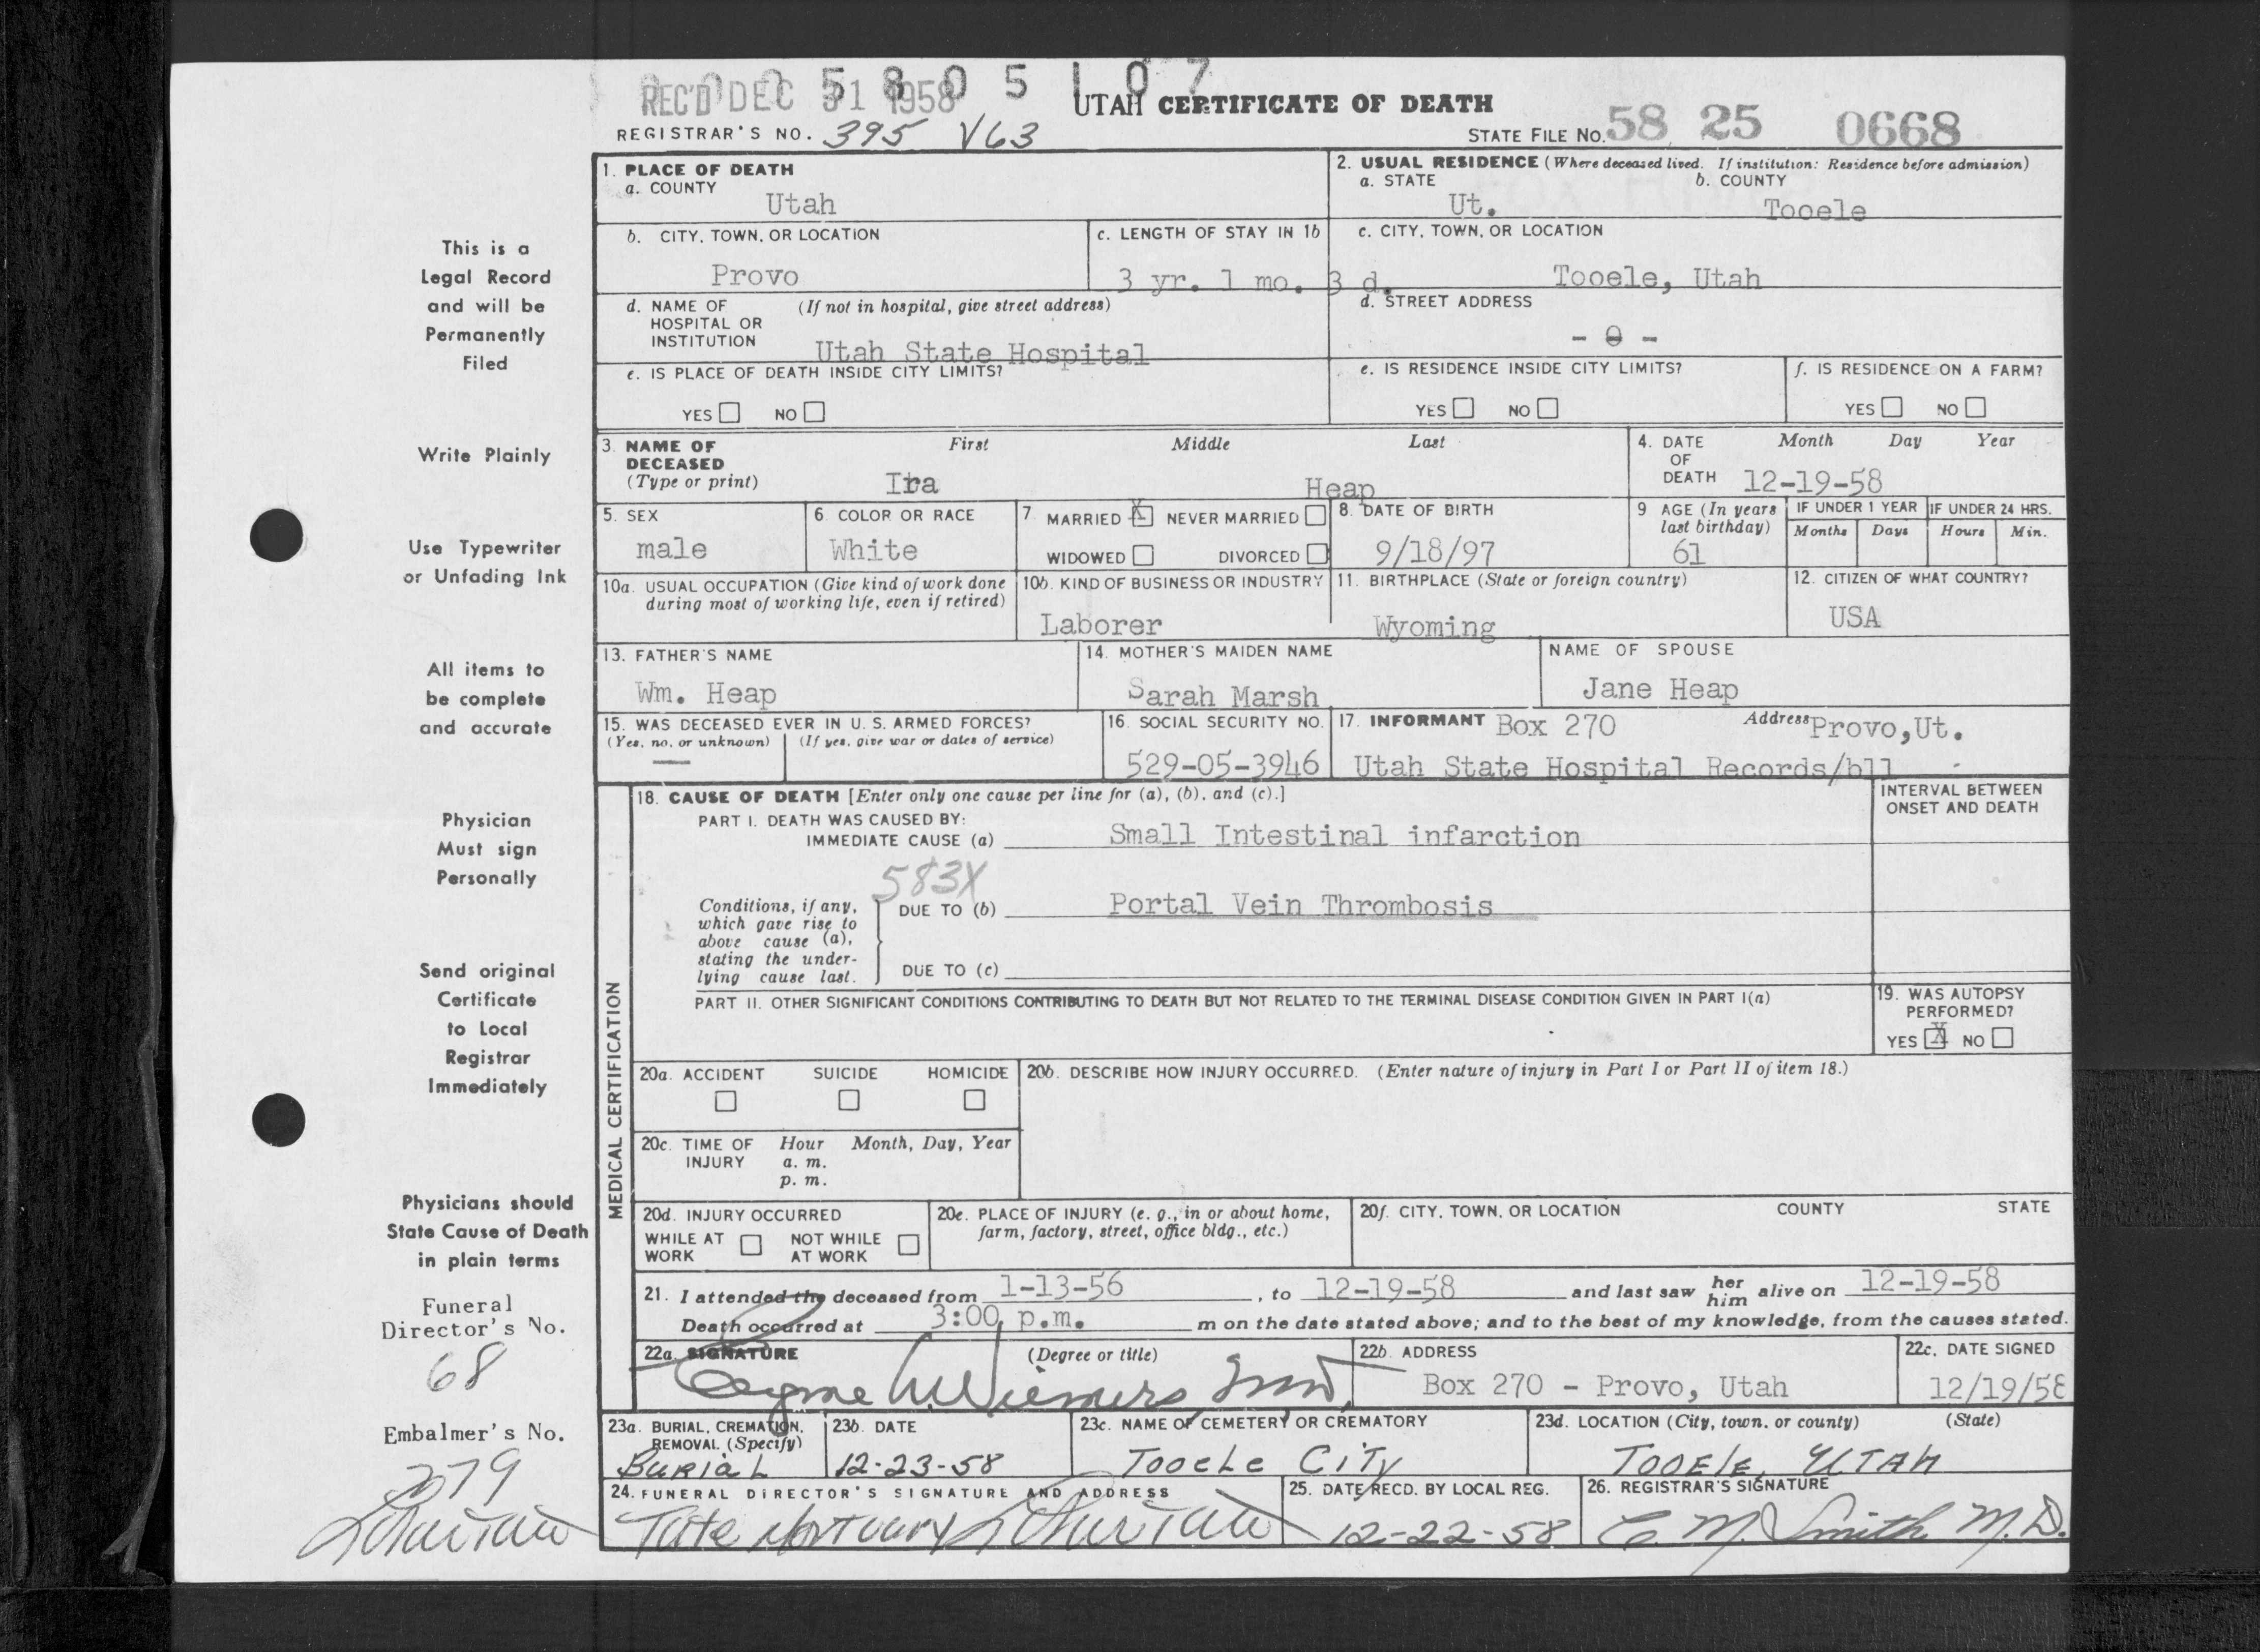 REC'D DEC 31 1958
5 8 0 5 1 0 7
UTAH CERTIFICATE OF DEATH
REGISTRAR'S NO. 395 V63
STATE FILE NO. 58 25 0668
This is a
Legal Record
and will be
Permanently
Filed
Write Plainly
Use Typewriter
or Unfading Ink
All items to
be complete
and accurate
Physician
Must sign
Personally
Send original
Certificate
to Local
Registrar
Immediately
Physicians should
State Cause of Death
in plain terms
Funeral
Director's No.
68
Embalmer's No.
2079
1. PLACE OF DEATH
a. COUNTY
Utah
2. USUAL RESIDENCE (Where deceased lived. If institution: Residence before admission)
a. STATE b. COUNTY
Ut. Tooele
b. CITY, TOWN, OR LOCATION
Provo
c. LENGTH OF STAY IN 1b
3 yr. 1 mo. 3 d.
c. CITY, TOWN, OR LOCATION
Tooele, Utah
d. NAME OF (If not in hospital, give street address)
HOSPITAL OR
INSTITUTION
Utah State Hospital
d. STREET ADDRESS
- 0 -
e. IS PLACE OF DEATH INSIDE CITY LIMITS?
YES NO
e. IS RESIDENCE INSIDE CITY LIMITS?
YES NO
f. IS RESIDENCE ON A FARM?
YES NO
3. NAME OF First Middle Last
DECEASED
(Type or print)
Ira Heap
4. DATE Month Day Year
OF
DEATH 12-19-58
5. SEX
male
6. COLOR OR RACE
White
7. MARRIED X NEVER MARRIED
WIDOWED DIVORCED
8. DATE OF BIRTH
9/18/97
9 AGE (In years
last birthday)
61
IF UNDER 1 YEAR
Months Days
IF UNDER 24 HRS.
Hours Min.
10a. USUAL OCCUPATION (Give kind of work done
during most of working life, even if retired)
10b. KIND OF BUSINESS OR INDUSTRY
Laborer
11. BIRTHPLACE (State or foreign country)
Wyoming
12. CITIZEN OF WHAT COUNTRY?
USA
13. FATHER'S NAME
Wm. Heap
14. MOTHER'S MAIDEN NAME
Sarah Marsh
NAME OF SPOUSE
Jane Heap
15. WAS DECEASED EVER IN U. S. ARMED FORCES?
(Yes, no, or unknown) (If yes, give war or dates of service)
—
16. SOCIAL SECURITY NO.
529-05-3946
17. INFORMANT Box 270 Address Provo,Ut.
Utah State Hospital Records/bll
MEDICAL CERTIFICATION
18. CAUSE OF DEATH [Enter only one cause per line for (a), (b), and (c).]
INTERVAL BETWEEN
ONSET AND DEATH
PART I. DEATH WAS CAUSED BY:
IMMEDIATE CAUSE (a) Small Intestinal infarction
583X
Conditions, if any,
which gave rise to
above cause (a),
stating the under-
lying cause last.
DUE TO (b) Portal Vein Thrombosis
DUE TO (c)
PART II. OTHER SIGNIFICANT CONDITIONS CONTRIBUTING TO DEATH BUT NOT RELATED TO THE TERMINAL DISEASE CONDITION GIVEN IN PART I(a)
19. WAS AUTOPSY
PERFORMED?
YES X NO
20a. ACCIDENT SUICIDE HOMICIDE
20b. DESCRIBE HOW INJURY OCCURRED. (Enter nature of injury in Part I or Part II of item 18.)
20c. TIME OF Hour Month, Day, Year
INJURY a. m.
p. m.
20d. INJURY OCCURRED
WHILE AT NOT WHILE
WORK AT WORK
20e. PLACE OF INJURY (e. g., in or about home,
farm, factory, street, office bldg., etc.)
20f. CITY, TOWN, OR LOCATION COUNTY STATE
21. I attended the deceased from 1-13-56, to 12-19-58 and last saw her him alive on 12-19-58
Death occurred at 3:00 p.m. m on the date stated above; and to the best of my knowledge, from the causes stated.
22a. SIGNATURE (Degree or title)
22b. ADDRESS
Box 270 - Provo, Utah
22c. DATE SIGNED
12/19/58
23a. BURIAL, CREMATION,
REMOVAL (Specify)
Burial
23b. DATE
12-23-58
23c. NAME OF CEMETERY OR CREMATORY
Tooele City
23d. LOCATION (City, town, or county) (State)
Tooele, Utah
24. FUNERAL DIRECTOR'S SIGNATURE AND ADDRESS
Tate Mortuary
25. DATE RECD. BY LOCAL REG.
12-22-58
26. REGISTRAR'S SIGNATURE
C. M. Smith M.D.